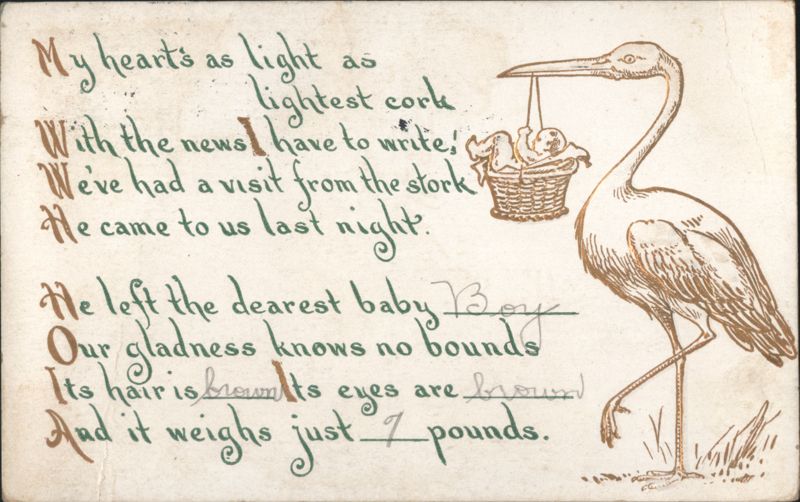 My heart's as light as
lightest cork
With the news I have to write;
We've had a visit from the stork
He came to us last night.
He left the dearest baby Boy
Our gladness knows no bounds
Its hair is brown Its eyes are brown
And it weighs just 9 pounds.